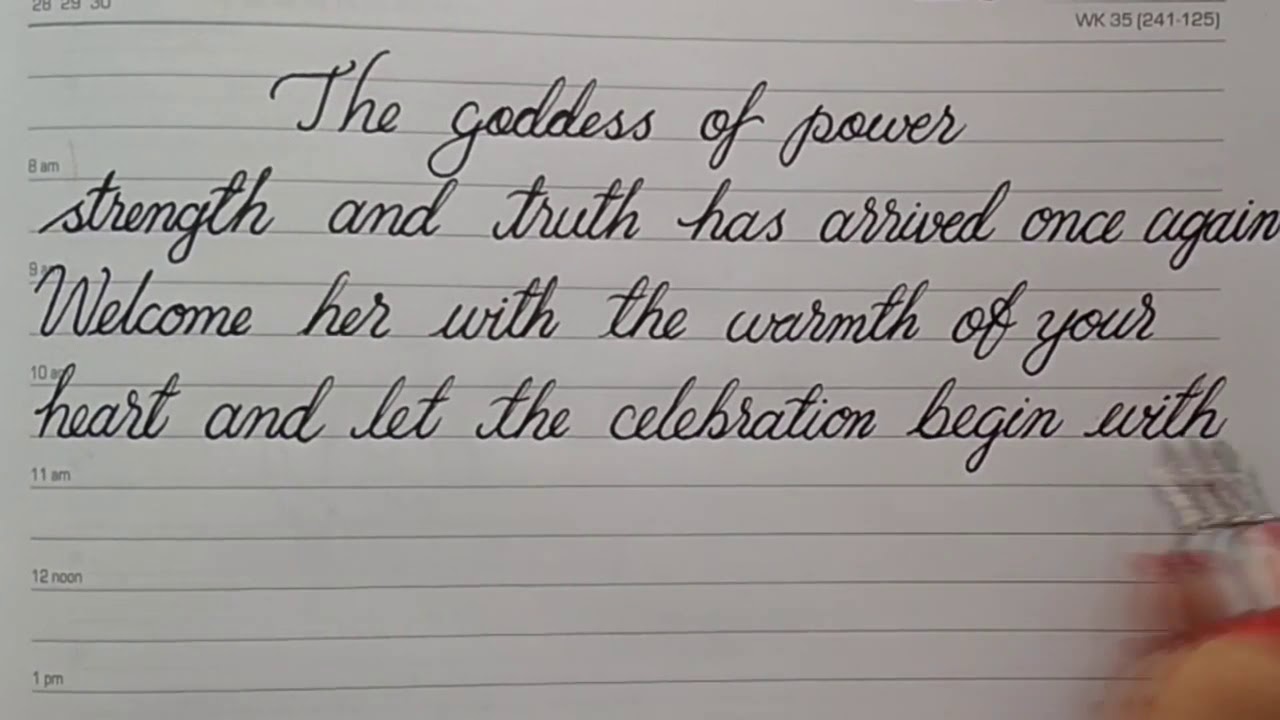 28 29 30
WK 35 (241-125)
The goddess of power
8 am
strength and truth has arrived once again
9 am
Welcome her with the warmth of your
10 am
heart and let the celebration begin with
11 am
12 noon
1 pm